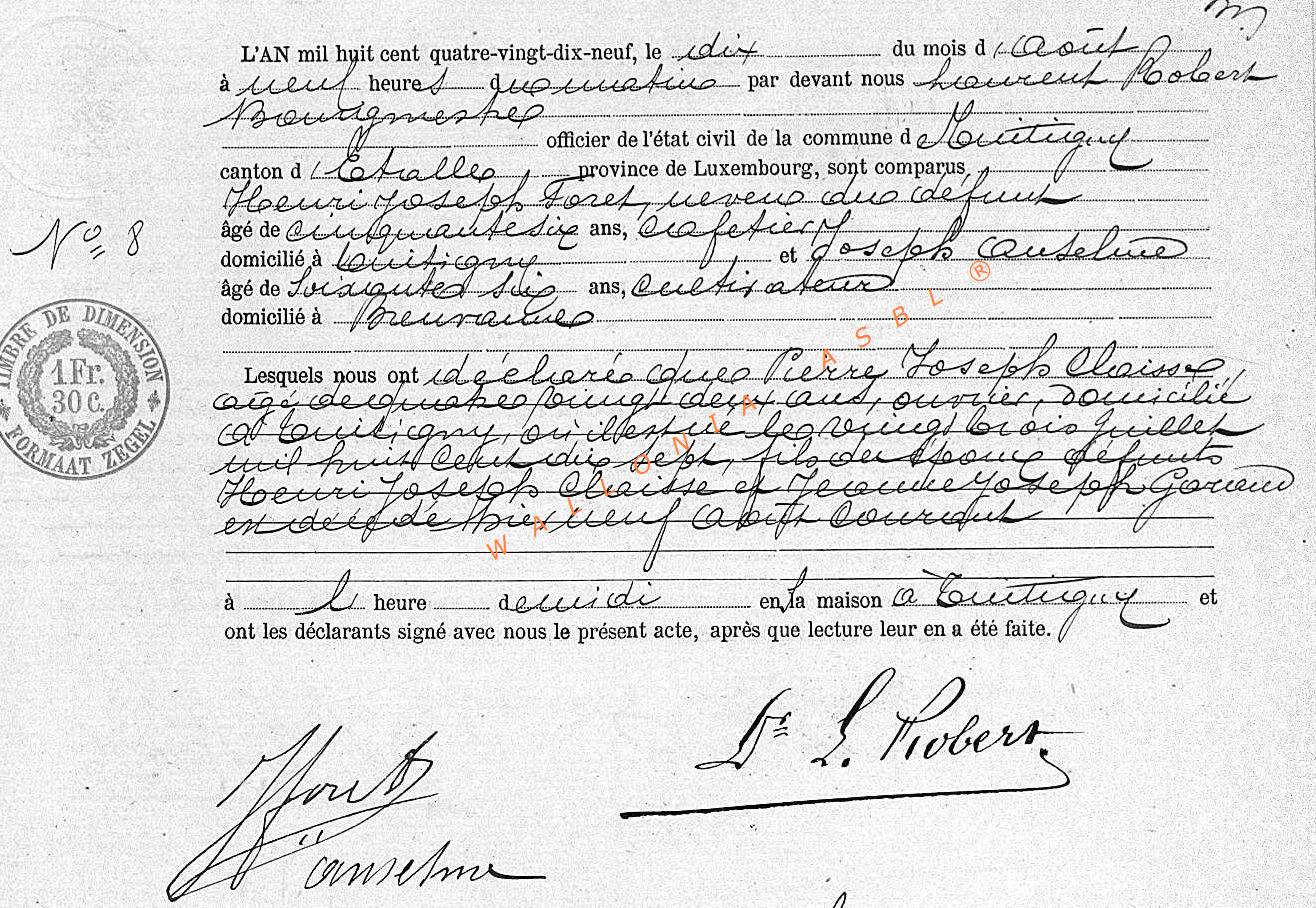 L'AN mil huit cent quatre-vingt-dix-neuf, le dix du mois d'août
à neuf heures du matin par devant nous Laurent Robert
Bourgmestre
officier de l'état civil de la commune d Tintigny
canton d'Etalle province de Luxembourg, sont comparus
Henri Joseph Foret, neveu du défunt
âgé de cinquante six ans, cafetier
domicilié à Tintigny et Joseph Anselme
No 8
âgé de Soixante six ans, cultivateur
domicilié à Breuvanne
TIMBRE DE DIMENSION
1 Fr.
30 C.
FORMAAT ZEGEL
WALLONIA ASBL ®
Lesquels nous ont déclaré que Pierre Joseph Claisse,
agé de quatre vingt deux ans, ouvrier, domicilié
à Tintigny, où il est né le vingt trois Juillet
mil huit cent dix sept, fils des époux défunts
Henri Joseph Claisse et Jeanne Joseph
en décédé hier neuf août courant
à l heure de midi en la maison à Tintigny et
ont les déclarants signé avec nous le présent acte, après que lecture leur en a été faite.
Dr L. Robert.
Foret
J anselme